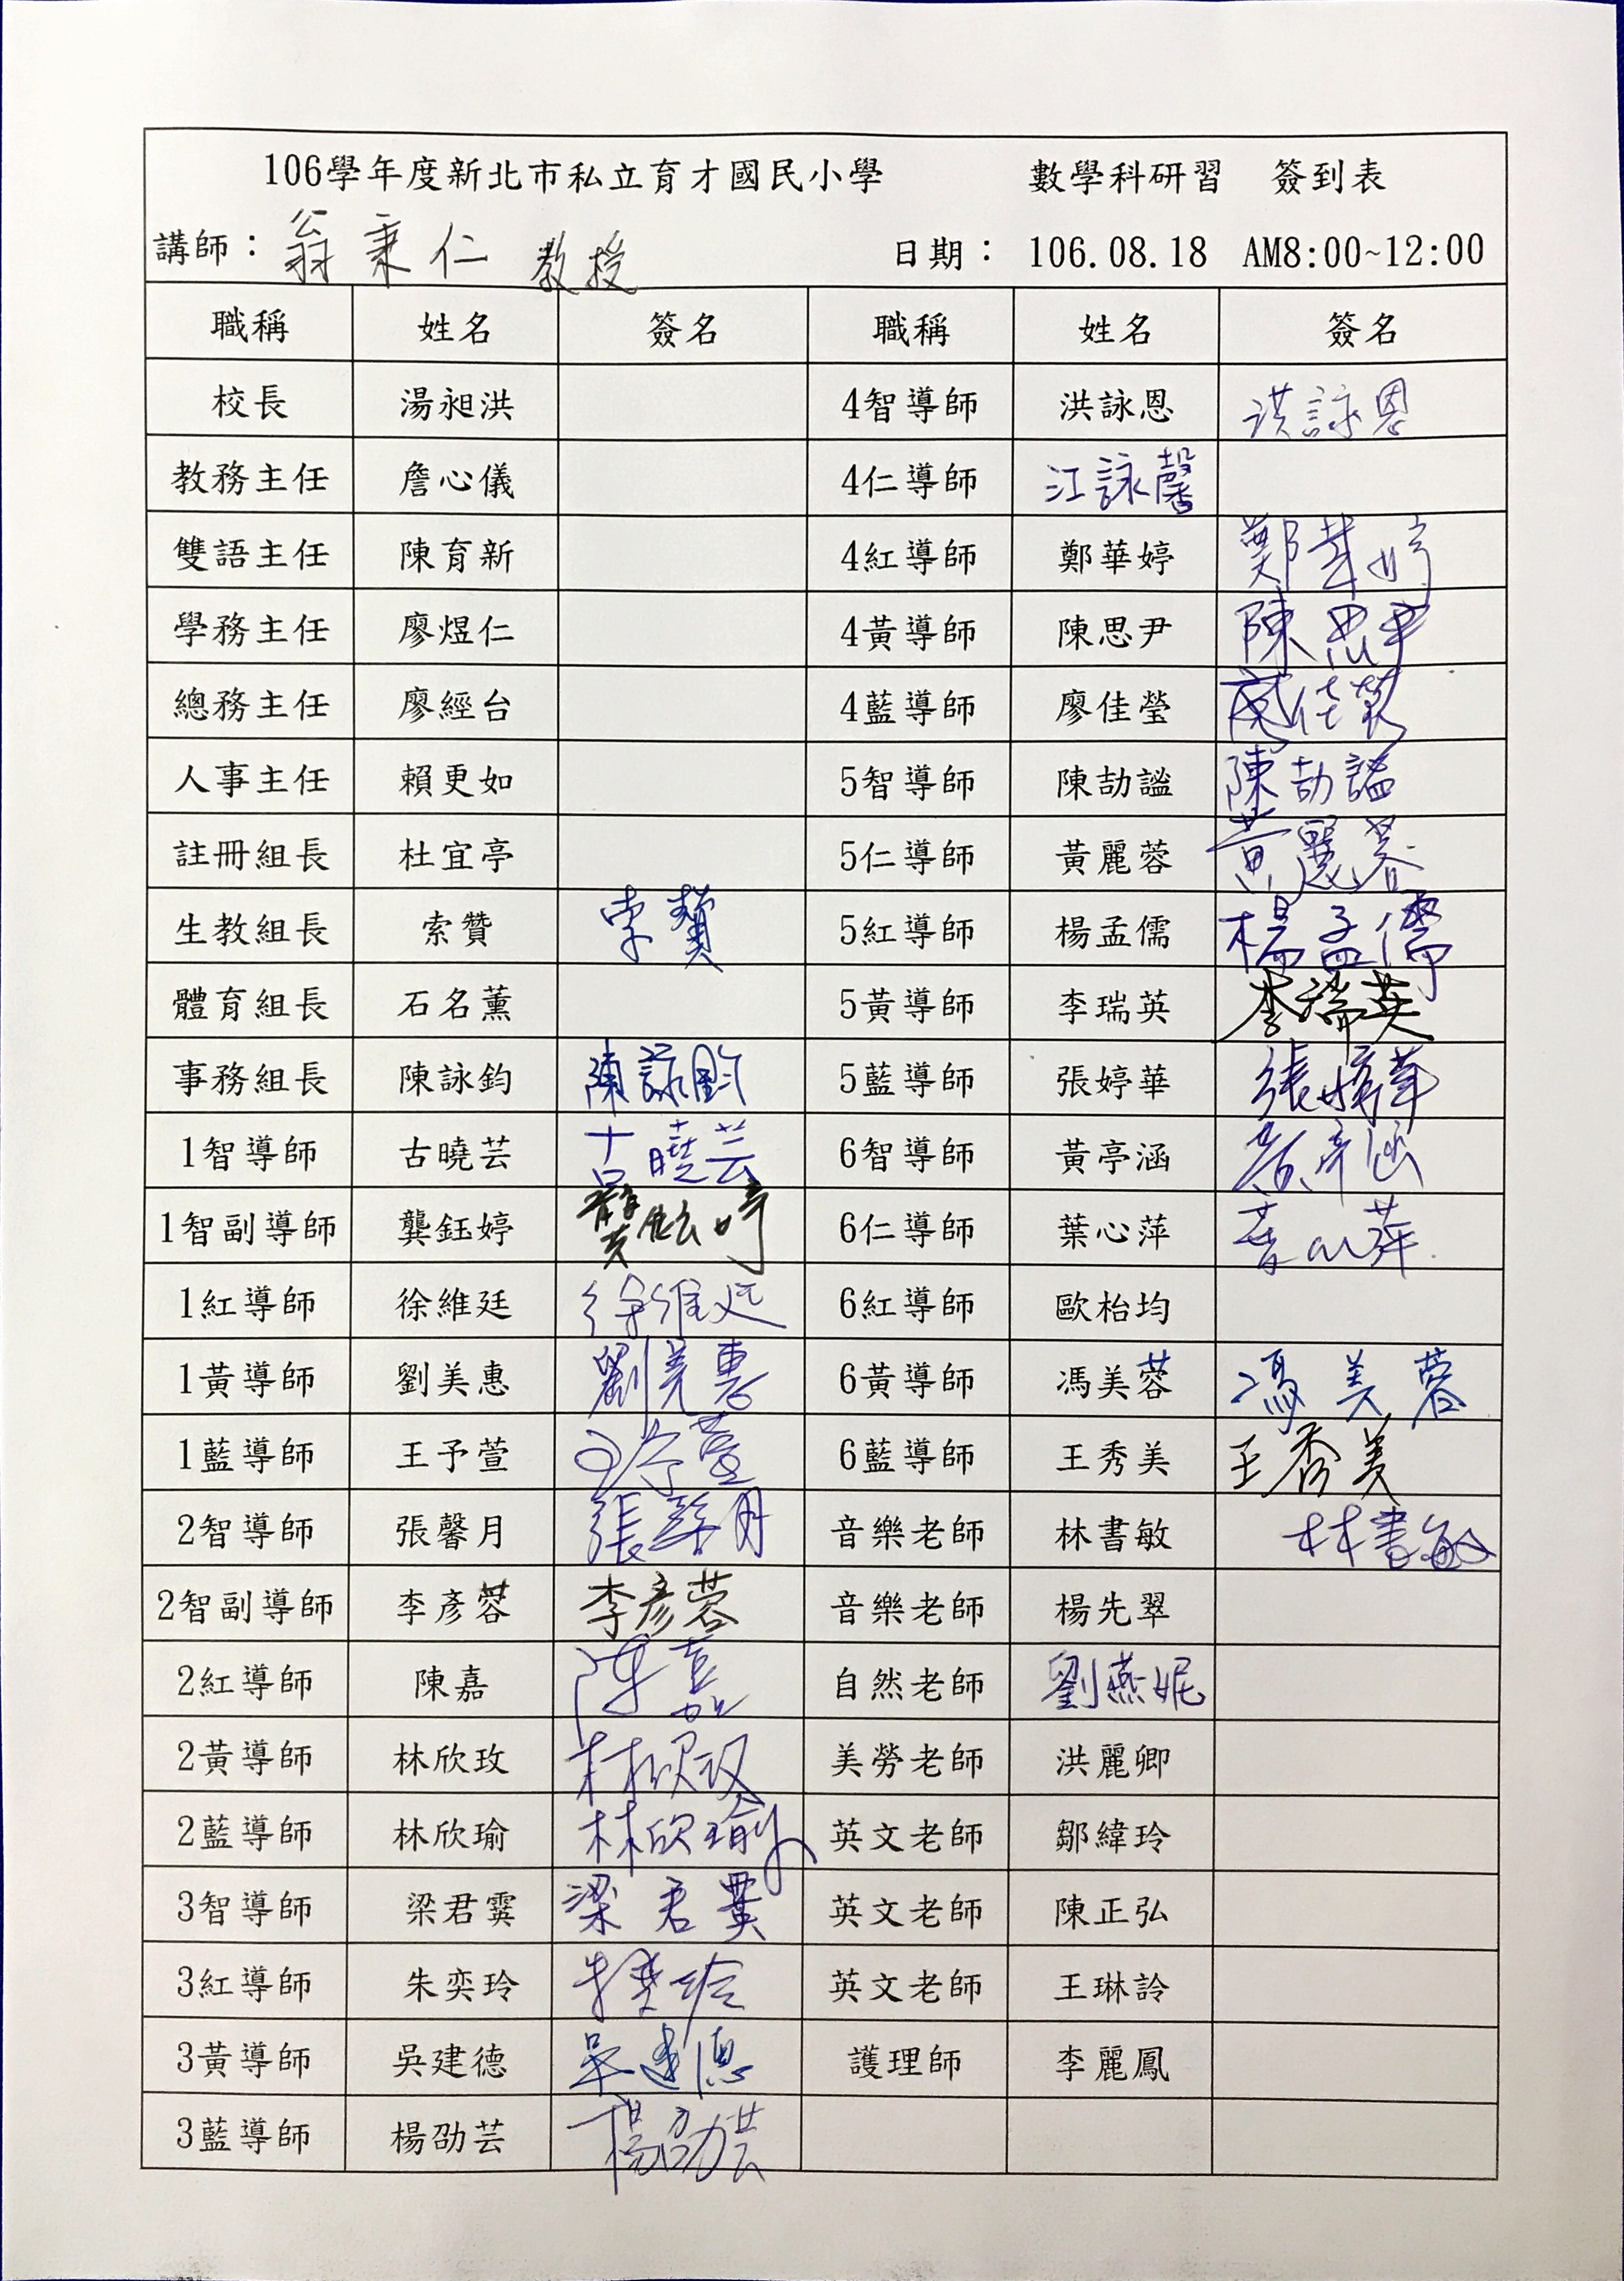 106學年度新北市私立育才國民小學 數學科研習 簽到表
講師：翁秉仁 教授 日期： 106.08.18 AM8:00~12:00
職稱 姓名 簽名 職稱 姓名 簽名
校長 湯昶洪 4智導師 洪詠恩 洪詠恩
教務主任 詹心儀 4仁導師 江詠馨
雙語主任 陳育新 4紅導師 鄭華婷 鄭華婷
學務主任 廖煜仁 4黃導師 陳思尹 陳思尹
總務主任 廖經台 4藍導師 廖佳瑩 廖佳瑩
人事主任 賴更如 5智導師 陳劼謐 陳劼謐
註冊組長 杜宜亭 5仁導師 黃麗蓉 黃麗蓉
生教組長 索贊 索贊 5紅導師 楊孟儒 楊孟儒
體育組長 石名薰 5黃導師 李瑞英 李瑞英
事務組長 陳詠鈞 陳詠鈞 5藍導師 張婷華 張婷華
1智導師 古曉芸 古曉芸 6智導師 黃亭涵 黃亭涵
1智副導師 龔鈺婷 龔鈺婷 6仁導師 葉心萍 葉心萍
1紅導師 徐維廷 徐維廷 6紅導師 歐枱均
1黃導師 劉美惠 劉美惠 6黃導師 馮美蓉 馮美蓉
1藍導師 王予萱 王予萱 6藍導師 王秀美 王秀美
2智導師 張馨月 張馨月 音樂老師 林書敏 林書敏
2智副導師 李彥蓉 李彥蓉 音樂老師 楊先翠
2紅導師 陳嘉 陳嘉 自然老師 劉燕妮
2黃導師 林欣玫 林欣玫 美勞老師 洪麗卿
2藍導師 林欣瑜 林欣瑜 英文老師 鄒緯玲
3智導師 梁君霙 梁君霙 英文老師 陳正弘
3紅導師 朱奕玲 朱奕玲 英文老師 王琳詅
3黃導師 吳建德 吳建德 護理師 李麗鳳
3藍導師 楊劭芸 楊劭芸